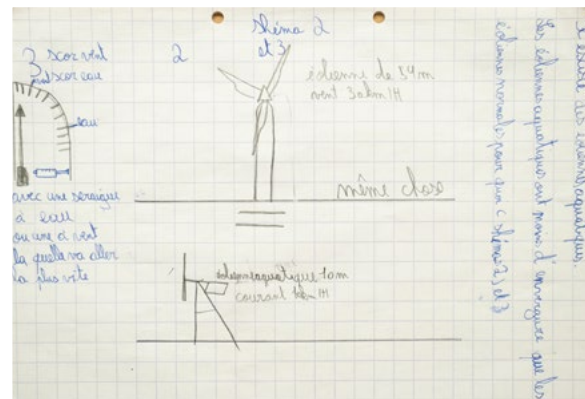 Shéma 2
et 3
3 scor vent
scor eau
eau
avec une seraigue
à eau
ou une à vent
la quelle va aller
la plus vite
2
éolienne de 54m
vent 30km/H
même chose
éolienne aquatique 10m
courant
Les éoliennes aquatiques ont moins d'envergure que les
éoliennes normales pour quoi c shéma 2, et 3